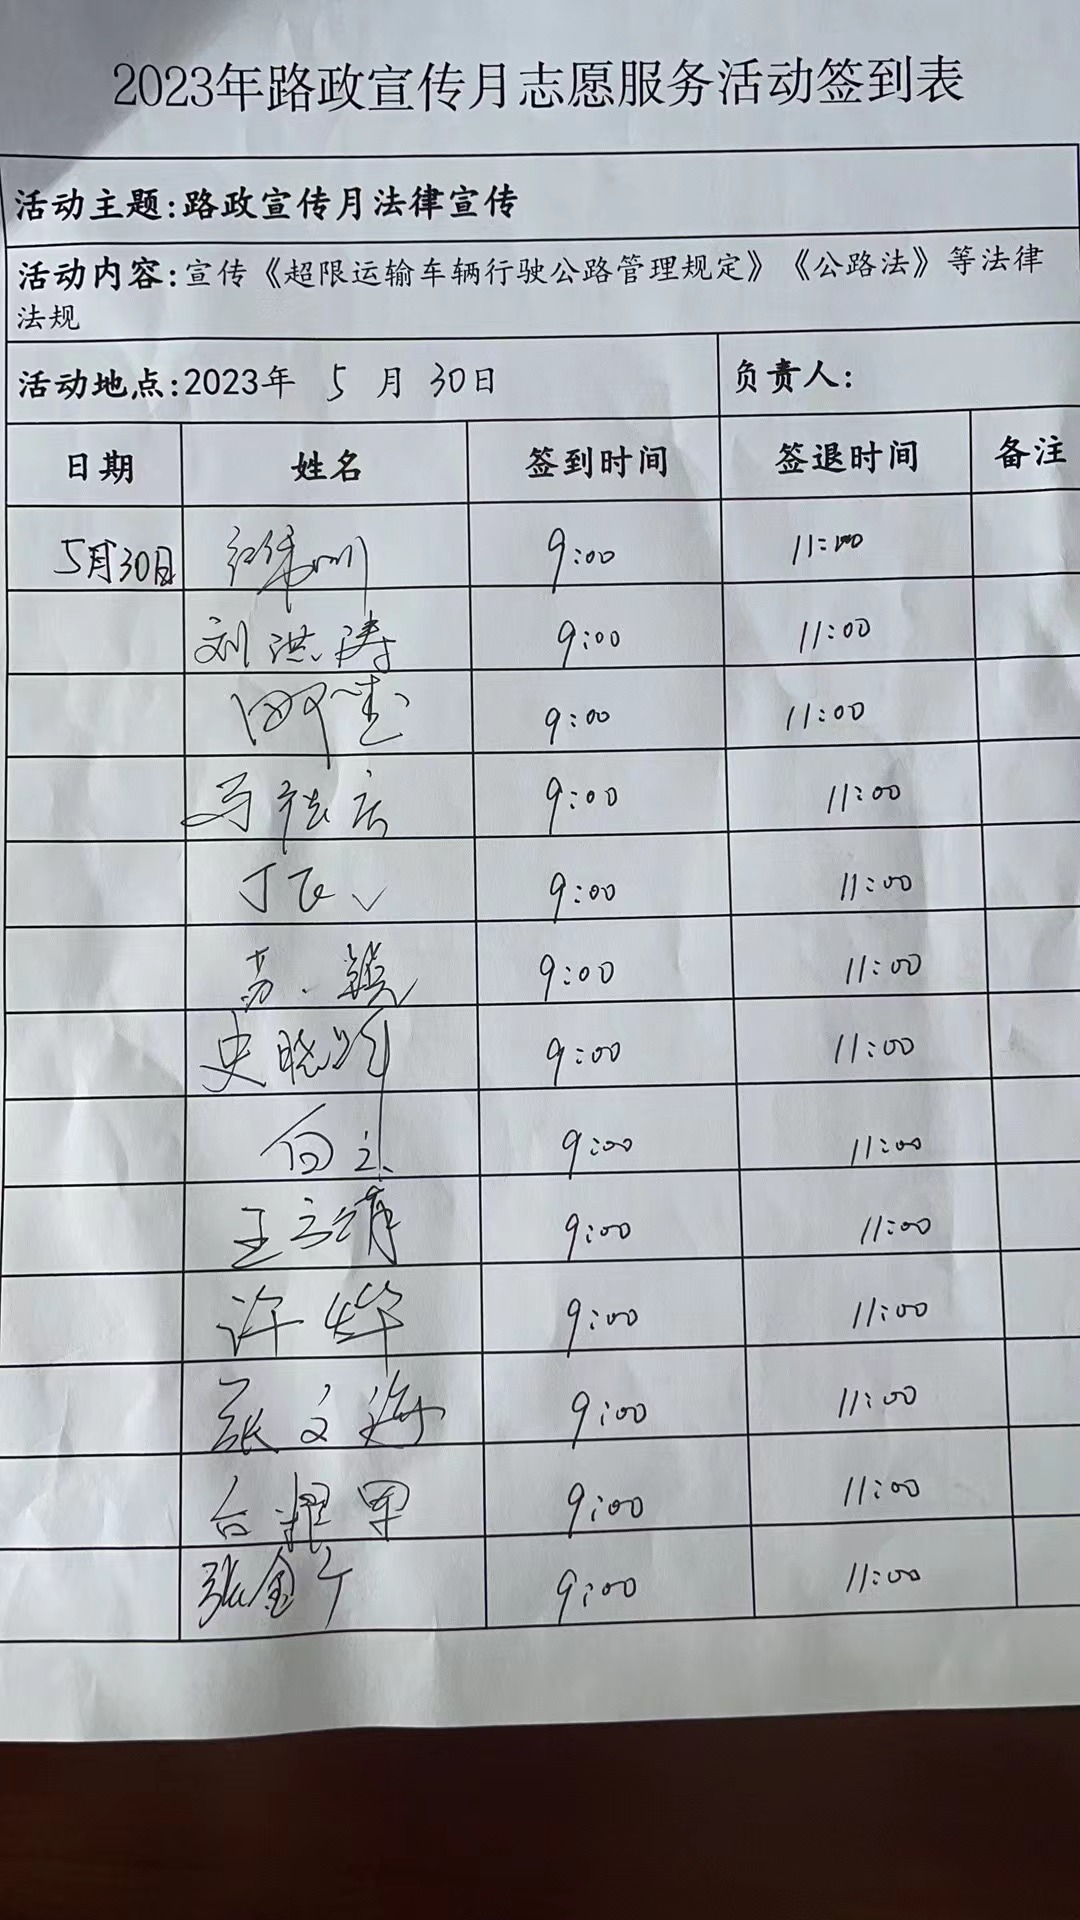 2023年路政宣传月志愿服务活动签到表
活动主题:路政宣传月法律宣传
活动内容:宣传《超限运输车辆行驶公路管理规定》《公路法》等法律
法规
活动地点:2023年 5 月 30日 负责人:
日期 姓名 签到时间 签退时间 备注
5月30日 9:00 11:00
刘洪涛 9:00 11:00
9:00 11:00
马 9:00 11:00
丁飞 9:00 11:00
苏 9:00 11:00
史晓 9:00 11:00
白 9:00 11:00
王 9:00 11:00
许烨 9:00 11:00
张文海 9:00 11:00
台 军 9:00 11:00
张金 9:00 11:00